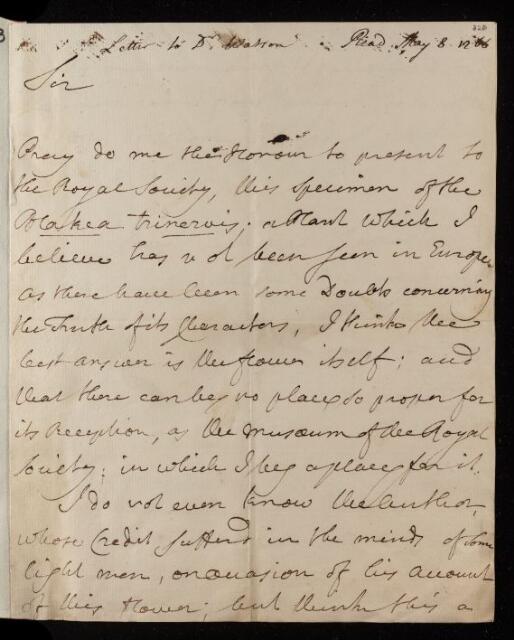 Letter to Dr Watson. Read May 8 1766
Sir
Pray do me the Honour to present to
the Royal Society, this specimen of the
Blakea trinervis; a Plant which I
believe has not been seen in Europe
As there have been some Doubts concerning
the Truth of its Characters, I think the
best answer is the flower itself; and
that there can be no place so proper for
its Reception, as the Musæum of the Royal
Society; in which I beg a place for it.
I do not even know the Author
whose Credit sufferd in the minds of some
light men, on occasion of his account
of this Flower; but think this a